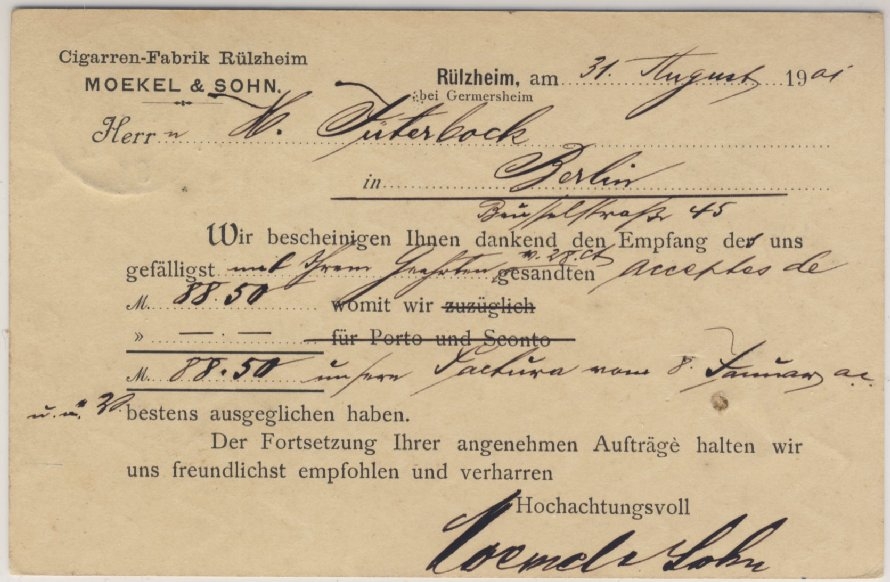 Cigarren-Fabrik Rülzheim
MOEKEL & SOHN.
Rülzheim, am 31. August 1901
bei Germersheim
Herrn M. Jüterbock
in Berlin
Beusselstraße 45
Wir bescheinigen Ihnen dankend den Empfang des uns
gefälligst mit Ihrem Geehrten v. 28. ct gesandten acceptes de
M. 88.50 womit wir zuzüglich
» —.— für Porto und Sconto
M. 88.50 unsere Factura vom 8. Januar a.c.
bestens ausgeglichen haben.
Der Fortsetzung Ihrer angenehmen Aufträge halten wir
uns freundlichst empfohlen und verharren
Hochachtungsvoll
Moekel & Sohn